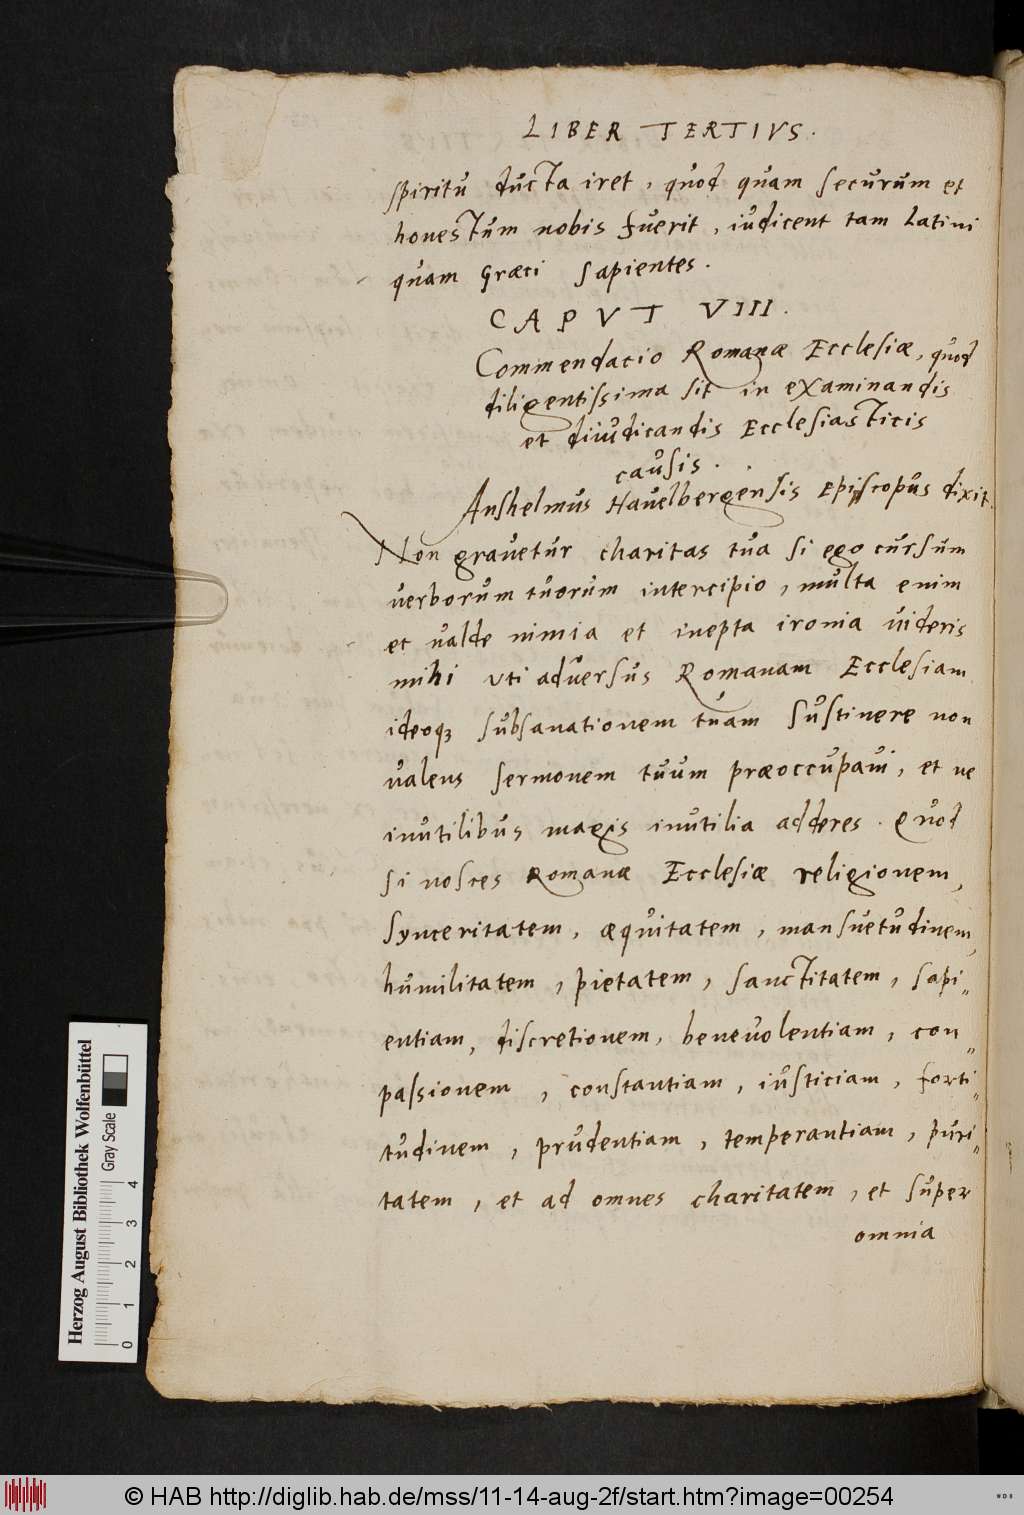 LIBER TERTIVS.
spiritu ducta iret, quod quam securum et
honestum nobis fuerit, iudicent tam Latini
quam Græci sapientes.
CAPVT VIII.
Commendacio Romanæ Ecclesiæ, quod
diligentissima sit in examinandis
et diiudicandis Ecclesiasticis
causis.
Anshelmus Havelbergensis Episcopus dixit.
Non gravetur charitas tua si ego cursum
verborum tuorum intercipio, multa enim
et valde nimia et inepta ironia videris
mihi uti adversus Romanam Ecclesiam
ideoqꝫ subsanationem tuam sustinere non
valens sermonem tuum præoccupavi, et ne
inutilibus magis inutilia adderes. Quod
si nosces Romanæ Ecclesiæ religionem,
synceritatem, æquitatem, mansuetudinem,
humilitatem, pietatem, sanctitatem, sapi„
entiam, discretionem, benevolentiam, con„
passionem, constantiam, iusticiam, forti„
tudinem, prudentiam, temperantiam, puri„
tatem, et ad omnes charitatem, et super
omnia
Herzog August Bibliothek Wolfenbüttel
Gray Scale
0 1 2 3 4
© HAB http://diglib.hab.de/mss/11-14-aug-2f/start.htm?image=00254